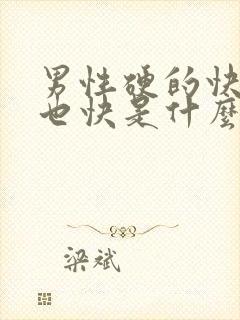 男性硬的快
也快是什麼
梁斌